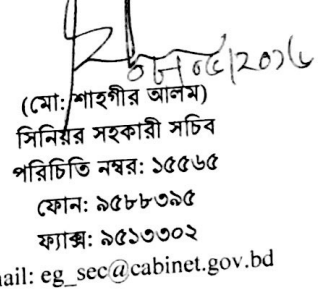 (মো: শাহগীর আলম)
সিনিয়র সহকারী সচিব
পরিচিতি নম্বর: ১৫৫৬৫
ফোন: ৯৫৮৮৩৯৫
ফ্যাক্স: ৯৫১৩৩০২
ail: eg_sec@cabinet.gov.bd